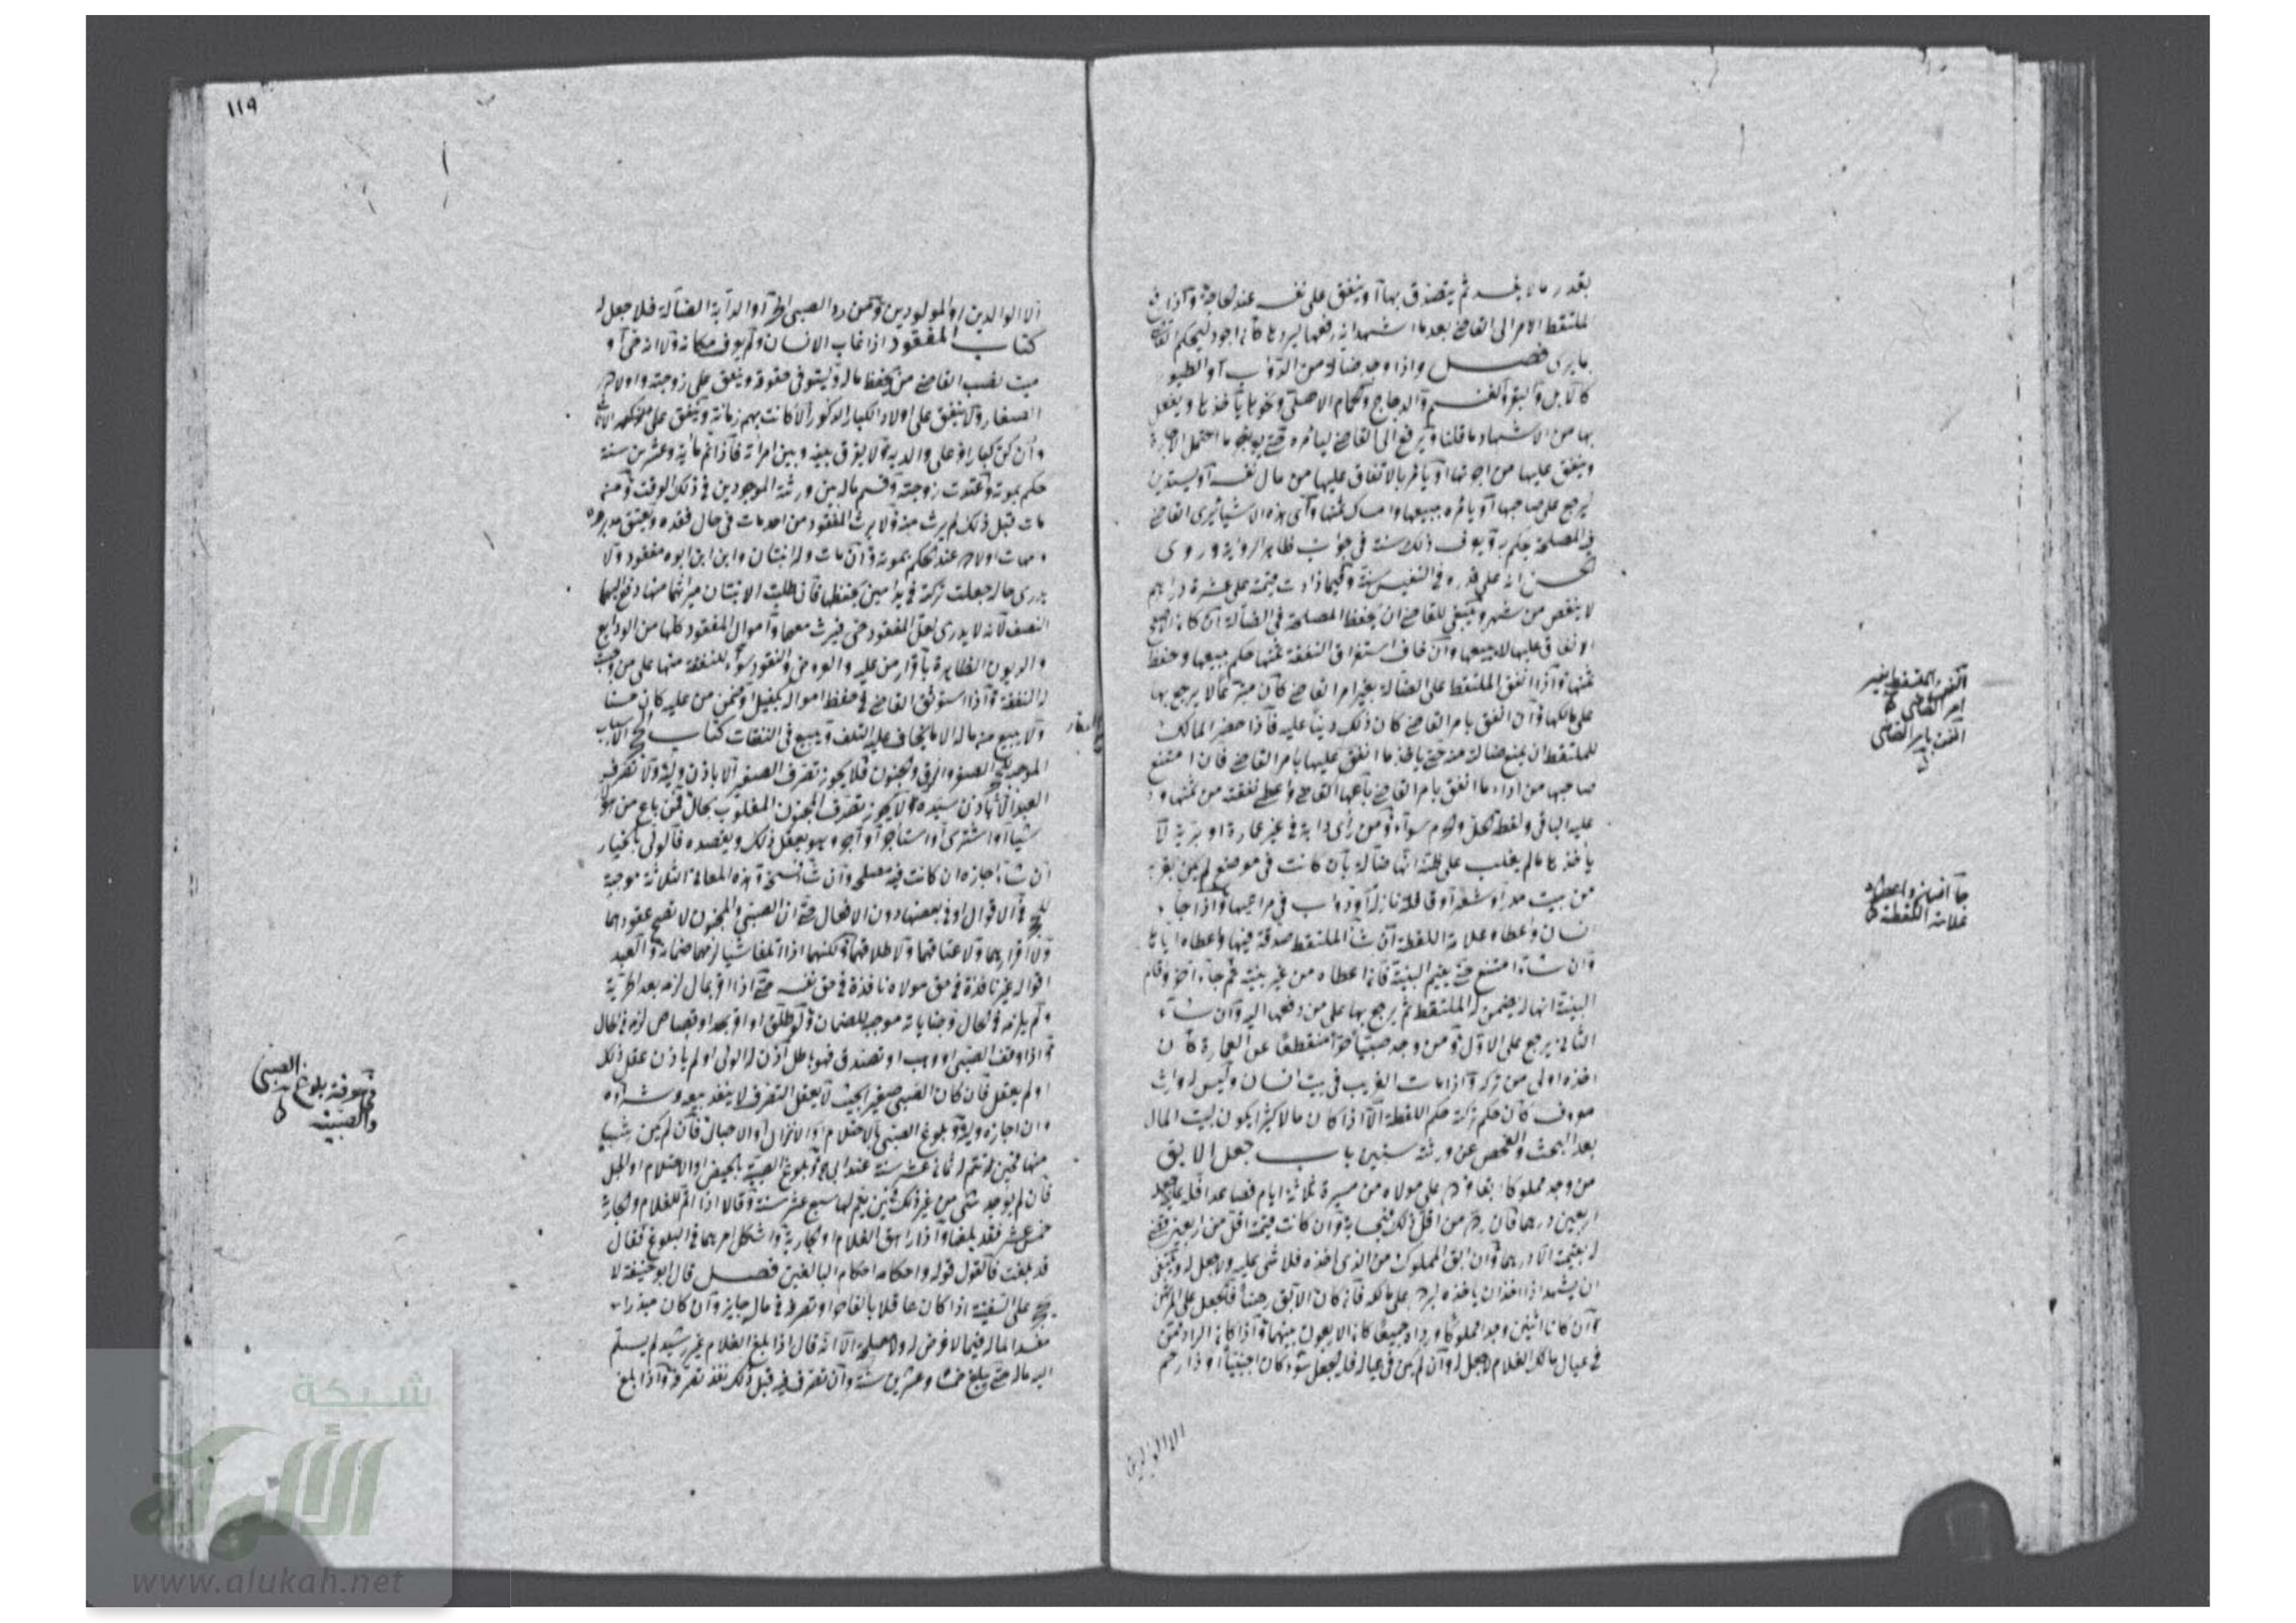 بقدر ما لا يفسد ثم يتصدق بها او ينفق على نفسه عند لحاجة واذا رفع
الملتقط الامر الى القاضى بعد ما اشهد انه رفعها ليردها كان اجود ليحكم القاضى
بما يرى فصل واذا وجد ضالة من الدواب او الطيو
كالابل والبقر والغنم والدجاج والحمام الاهلى ونحوها يأخذها ويفعل
بها من الاشهاد ما قلنا ويرفع الى القاضى ليأمره حتى يواجرها ما احتمل الاجارة
وينفق عليها من اجرتها او يأمر بالانفاق عليها من مال نفسه او يستدين
ليرجع على صاحبها او يأمره ببيعها وامساك ثمنها واى هذه الاشياء يرى القاضى
فى المصلحة يحكم به ويعرف ذلك سنة فى جواب ظاهر الرواية وروى
الحسن انه على قدره فى النفيس سنة وفيما زادت قيمته على عشرة دراهم
لا ينقص من شهر وينبغى للقاضى ان يحفظ المصلحة فى الضالة ان كان الاصلح
الانفاق عليها لا يبيعها وان خاف استغراق النفقة ثمنها حكم ببيعها وحفظ
ثمنها واذا انفق الملتقط على الضالة بغير امر القاضى كان متبرعا لا يرجع بها
على مالكها وان انفق بامر القاضى كان ذلك دينا عليه فاذا حضر المالك
للملتقط ان يمنع ضالته منه حتى ياخذ ما انفق عليها بامر القاضى فان امتنع
صاحبها من اداء ما انفق بامر القاضى باعها القاضى واعطى نفقته من ثمنها و
عليه الباقى ولقطة الحل والحرم سواء ومن رأى دابة فى غير عمارة او برية لا
ياخذها ما لم يغلب على ظنه انها ضالة بان كانت فى موضع لم يكن بقربه
من بيت مدر او شعر او قافلة نازلة او دواب فى مراعيها واذا جاء
انسان واعطاه علامة اللقطة ان شاء الملتقط صدقه فيها واعطاه اياها
وان شاء امتنع حتى يقيم البينة فاذا اعطاه من غير بينة ثم جاء آخر واقام
البينة انها له يضمن له الملتقط ثم يرجع بها على من دفعها اليه وان شاء
الثانى يرجع على الاول ومن وجد صبيا حرا منقطعا عن العمارة كان
اخذه اولى من تركه واذا مات الغريب فى بيت انسان وليس له وارث
معروف كان حكم تركته حكم اللقطة الا اذا كان مالا كثيرا يكون لبيت المال
بعد البحث والفحص عن ورثته سنين باب جعل الابق
من وجد مملوكا ابقا فرده على مولاه من مسيرة ثلاثة ايام فصاعدا فله عليه جعله
اربعين درهما فان رده من اقل ذلك فبحسابه وان كانت قيمته اقل من اربعين قضى
له بقيمته الا درهما وان ابق المملوك من الذى اخذه فلا شئ عليه ولا جعل له وينبغى
ان يشهد اذا اخذ ان ياخذه ليرده على مالكه فان كان الابق رهنا فالجعل على المرتهن
وان كانا اثنين وجدا مملوكا ورداه جميعا كان الجعل بينهما واذا كان الراد ممن
فى عيال مالك الغلام لا جعل له وان لم يكن فى عياله فله الجعل سواء كان اجنبيا او ذا رحم
الا الوالدين
انفق الملتقط بغير
امر القاضى
انفق بامر القاضى
جاء انسان واعطاه
علامة اللقطة
١١٩
الا الوالدين او المولودين ومن رد الصبى الحر او الدابة الضالة فلا جعل له
كتاب المفقود اذا غاب الانسان ولم يعرف مكانه ولا انه حى او
ميت نصب القاضى من يحفظ ماله ويستوفى حقوقه وينفق على زوجته واولاده
الصغار ولا ينفق على اولاده الكبار الذكور الا كانت بهم زمانة وينفق على الاناث
وان كن كبارا وعلى والديه ولا يفرق بينه وبين امرأته فاذا تم مائة وعشرين سنة
حكم بموته واعتدت زوجته وقسم ماله بين ورثته الموجودين فى ذلك الوقت ومن
مات قبل ذلك لم يرث منه ولا يرث المفقود من احد مات فى حال فقده ويعتق مدبروه
وامهات اولاده عند الحكم بموته وان مات وله ابنتان وابن ابن ابوه مفقود ولا
يدرى حاله جعلت تركته فى يد امين يحفظها فان طلبت الابنتان ميراثهما منها دفع اليهما
النصف لانه لا يدرى لعل المفقود حى فيرث معهما واموال المفقود كلها من الودايع
والديون الظاهرة باقرار من عليه والعروض والنقود سواء للنفقة منها على من وجبت
له النفقة واذا استوثق القاضى فى حفظ امواله بكفيل او ممن من عليه كان حسنا
ولا يبيع من ماله الا ما يخاف عليه التلف ويبيع فى النفقات كتاب الحجر الاسباب
الموجبة للحجر الصغر والرق والجنون فلا يجوز تصرف الصغير الا باذن وليه ولا تصرف
العبد الا باذن سيده ولا يجوز تصرف المجنون المغلوب بحال فمن باع من هؤلاء
شيئا او اشترى او استأجر او آجر وهو يعقل ذلك ويقصده فالولى بالخيار
ان شاء اجازه ان كانت فيه مصلحة وان شاء فسخه وهذه المعانى الثلاثة موجبة
للحجر فى الاقوال او فى بعضها دون الافعال حتى ان الصبى والمجنون لا تصح عقودهما
ولا اقرارهما ولا عتاقهما ولا طلاقهما ولكنهما اذا اتلفا شيئا لزمهما ضمانه والعبد
اقواله غير نافذة فى حق مولاه نافذة فى حق نفسه حتى اذا اقر بمال لزمه بعد الحرية
ولم يلزمه فى الحال وجناياته موجبة للضمان ولو طلق او اقر بحد او قصاص لزمه فى الحال
واذا وقف الصبى او وهب او تصدق فهو باطل اذن له الولى او لم ياذن عقل ذلك
او لم يعقل فان كان الصبى صغيرا بحيث لا يعقل التصرف لا ينفذ بيعه وشراؤه
وان اجازه وليه وبلوغ الصبى بالاحتلام او الانزال او الاحبال فان لم يكن شيئا
منها فحين تتم له ثمانى عشرة سنة عند ابى ح وبلوغ الصبية بالحيض او الاحتلام او الحبل
فان لم يوجد شئ من غير ذلك فحين يتم لها سبع عشر سنة وقالا اذا تم للغلام والجارية
خمس عشر فقد بلغا واذا راهق الغلام او الجارية واشكل امرهما فى البلوغ فقال
قد بلغت فالقول قوله واحكامه احكام البالغين فصل قال ابو حنيفة لا
يحجر على السفيه اذا كان عاقلا بالغا حرا وتصرفه فى ماله جايز وان كان مبذرا
مفسدا لماله فيما لا غرض له ولا مصلحة الا انه قال اذا بلغ الغلام غير رشيد لم يسلم
اليه ماله حتى يبلغ خمسا وعشرين سنة وان تصرف فيه قبل ذلك نفذ تصرفه واذا بلغ
معرفة بلوغ الصبى
والصبية
شبكة
الألوكة
www.alukah.net